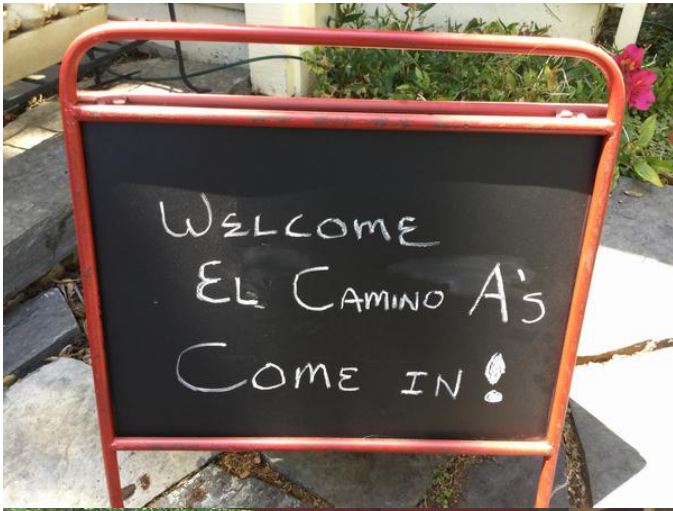 Welcome
El Camino A's
Come in!